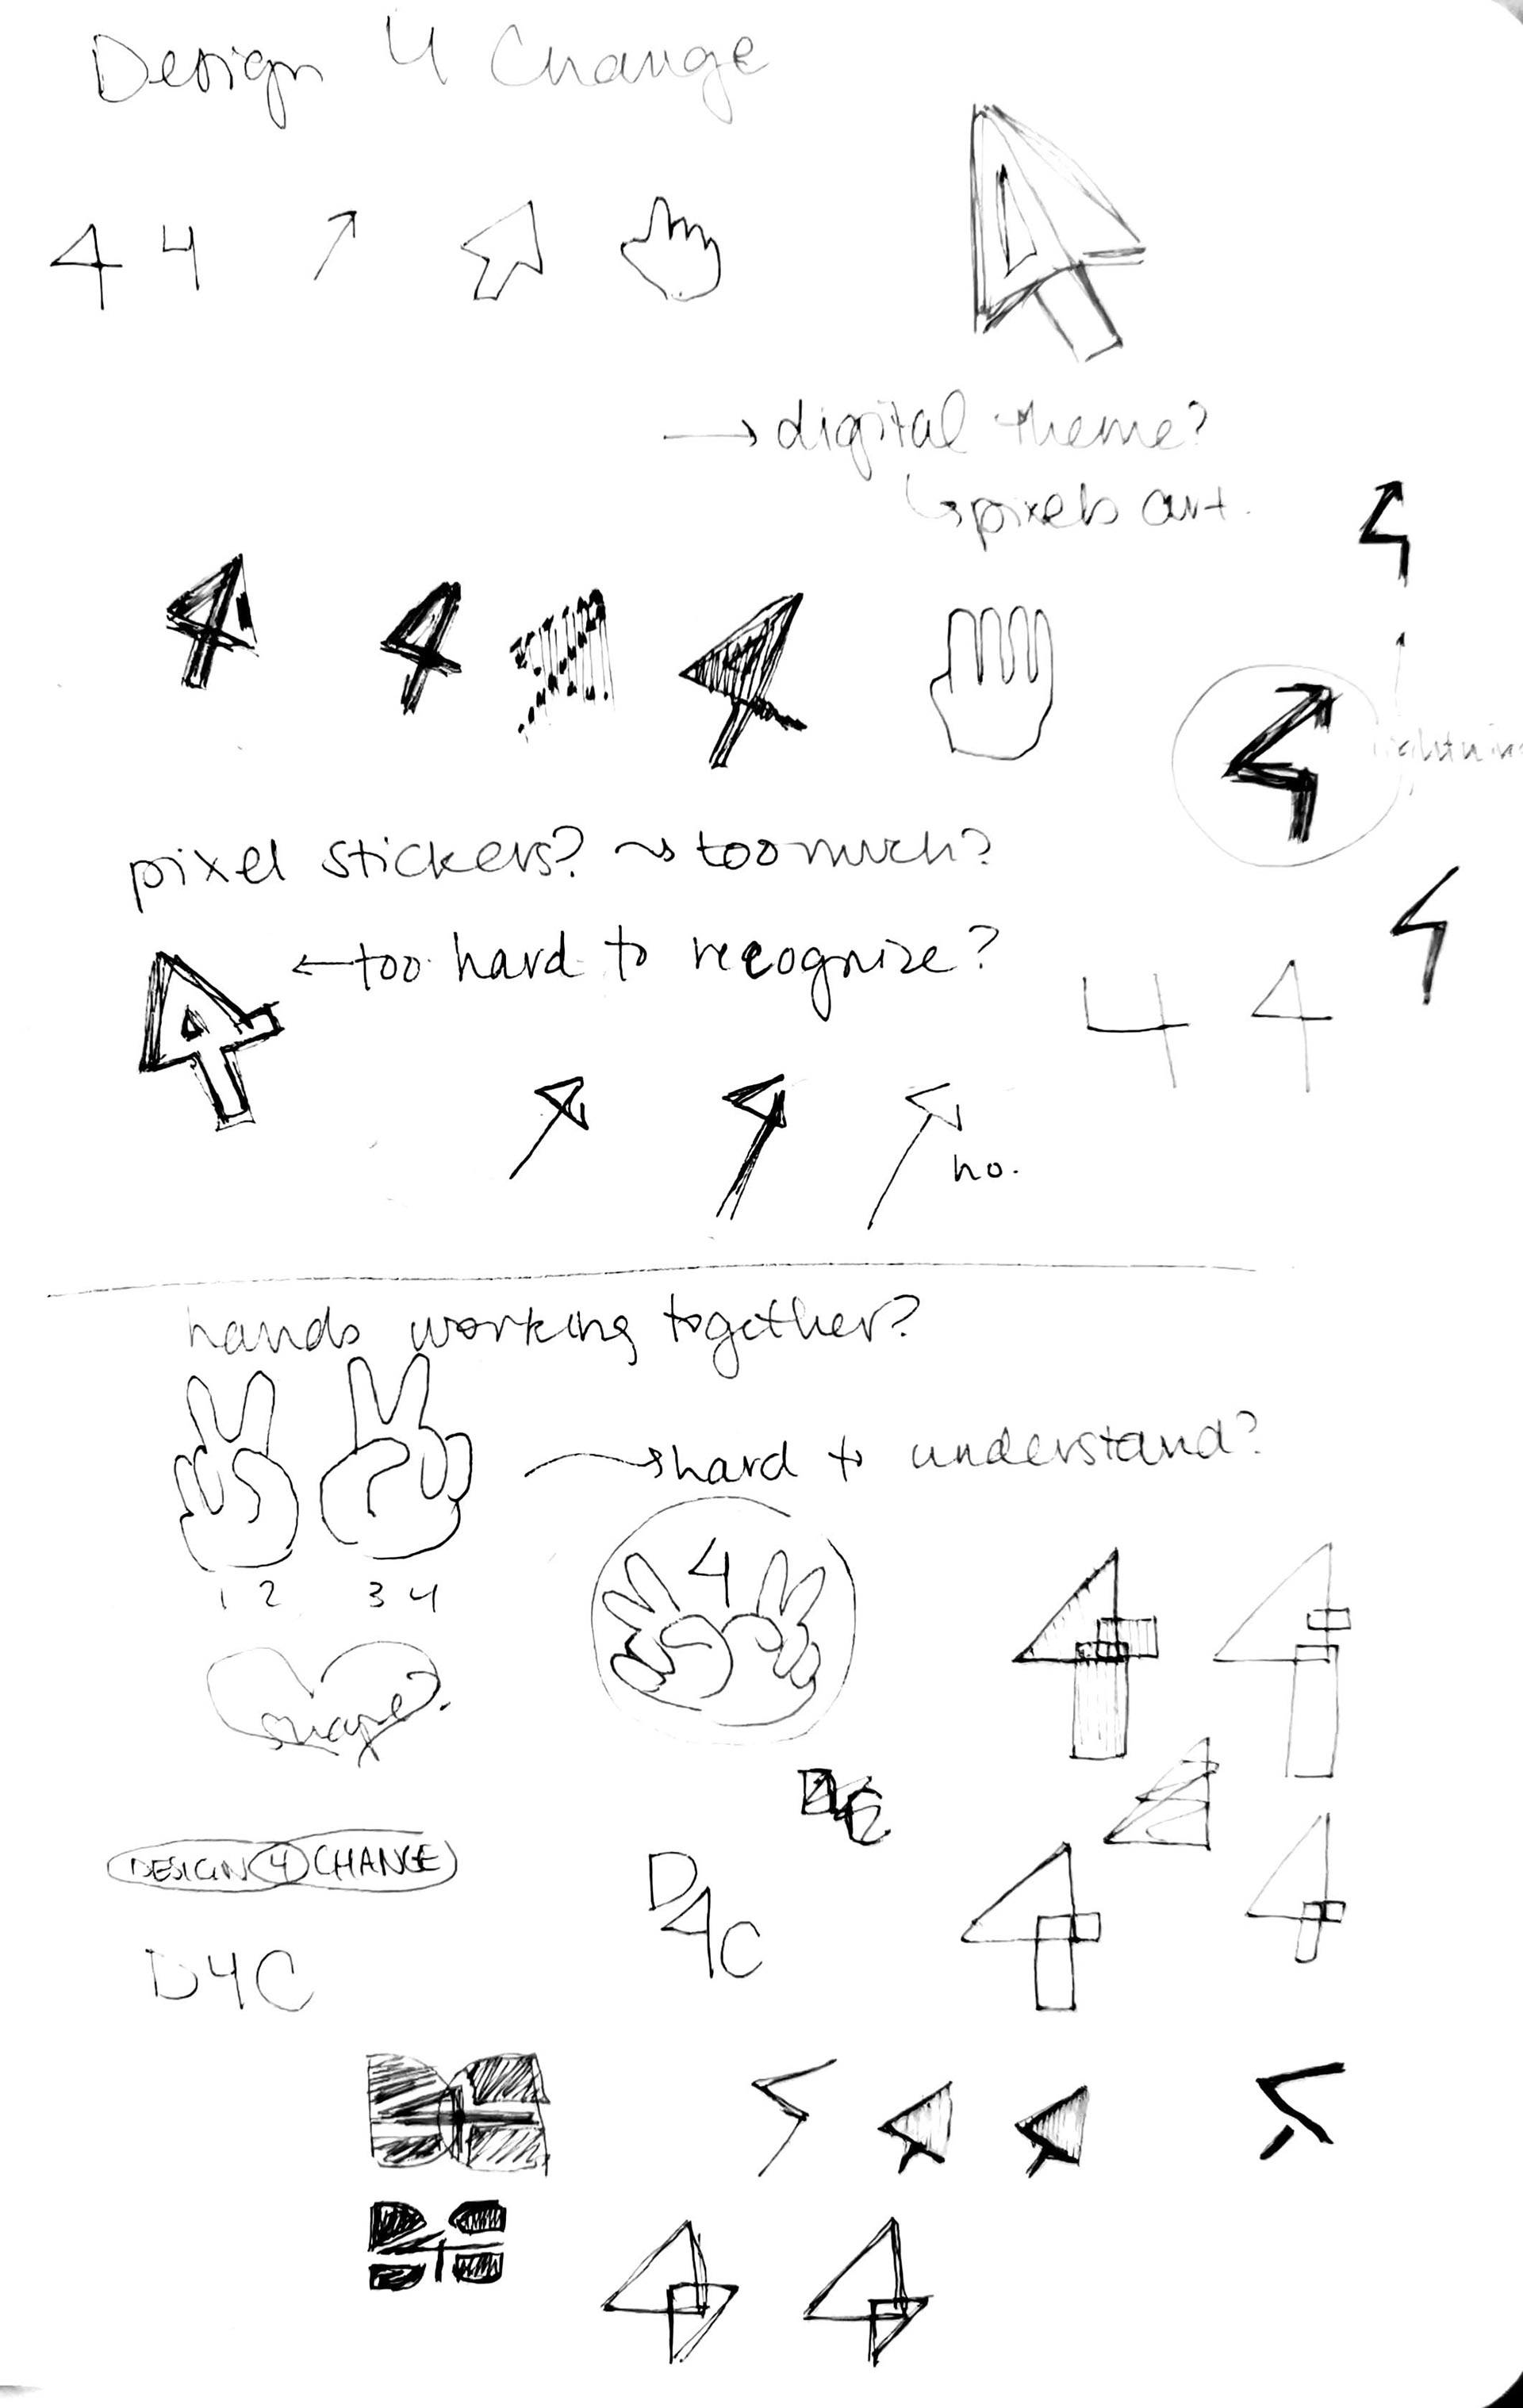 Design 4 Change
4 4
→ digital theme?
↳ pixels art.
lightnin
pixel stickers? → too much?
← too hard to recognize?
4 4
no.
hands working together?
→ hard to understand?
1 2 3 4
4
shape?
D4C
DESIGN 4 CHANGE
D4C
D4C